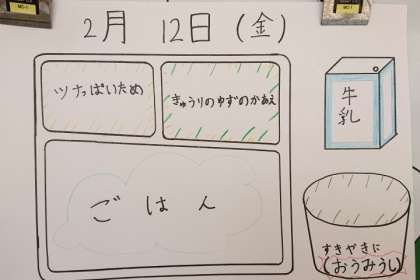 2月 12日 (金)
ツナっぱいため
きゅうりのゆずのかあえ
牛
乳
ごはん
すきやきに
(おうみうし)